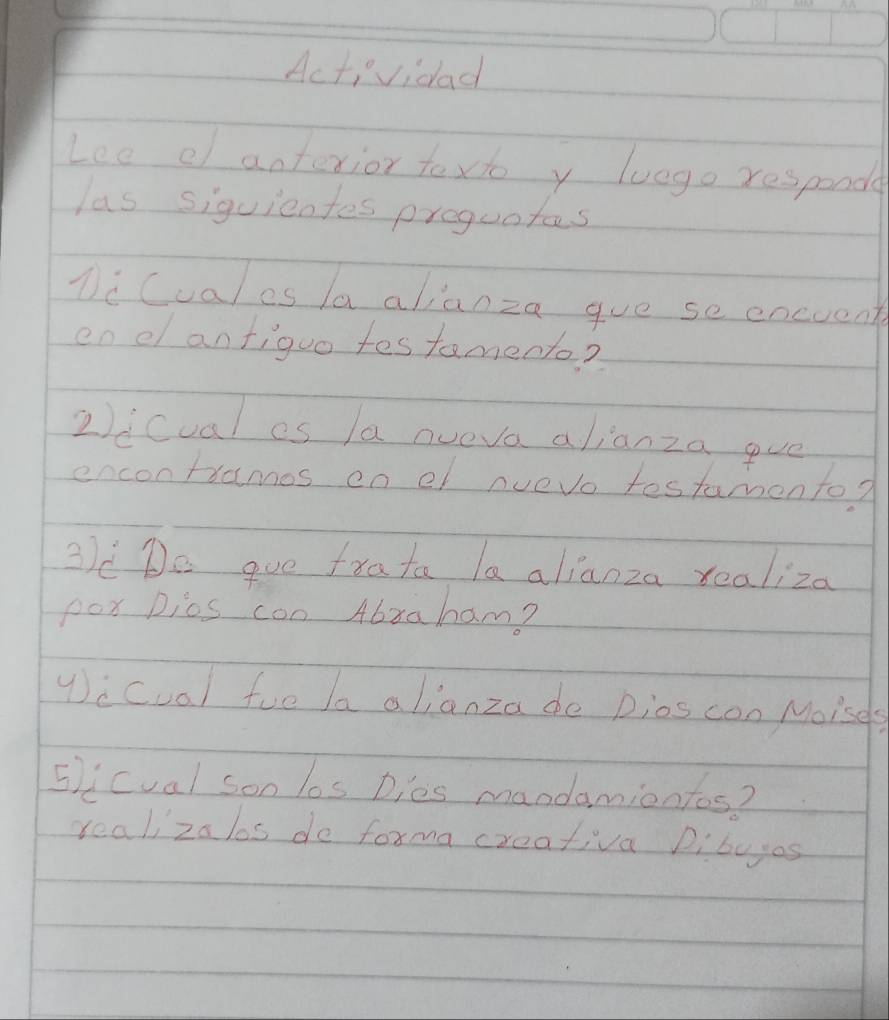 Actividad
Lee el anterior texto y luego responde
las siguientes preguntas
1)¿Cual es la alianza que se encuent
en el antiguo testamento?
2)¿Cual es la nueva alianza que
encontramos en el nuevo testamento?
3)¿De que trata la alianza realiza
por Dios con Abraham?
4)¿Cual fue la alianza de Dios con Moises
5)¿Cual son los Dies mandamientos?
realizalos de forma creativa Dibujos